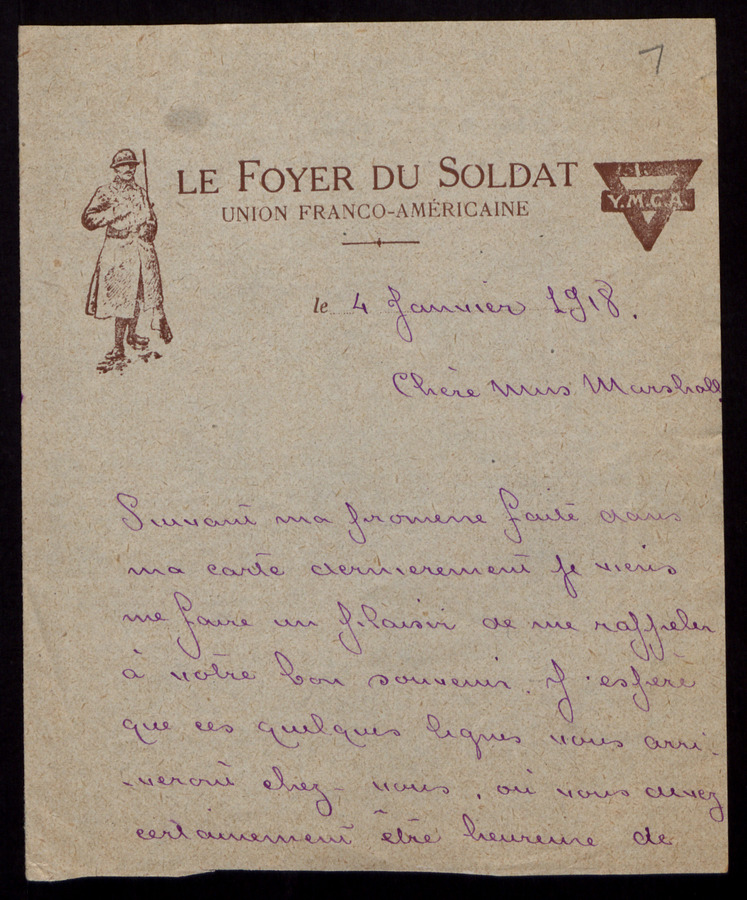 7
LE FOYER DU SOLDAT
UNION FRANCO-AMÉRICAINE
Y.M.C.A.
le 4 Janvier 1918.
Chère Miss Marshall
Suivant ma promesse faite dans
ma carte dernierement je viens
me faire un plaisir de me rappeler
à votre bon souvenir. J'espère
que ces quelques lignes vous arri-
-veront chez-vous, où vous devez
certainement être heureuse de